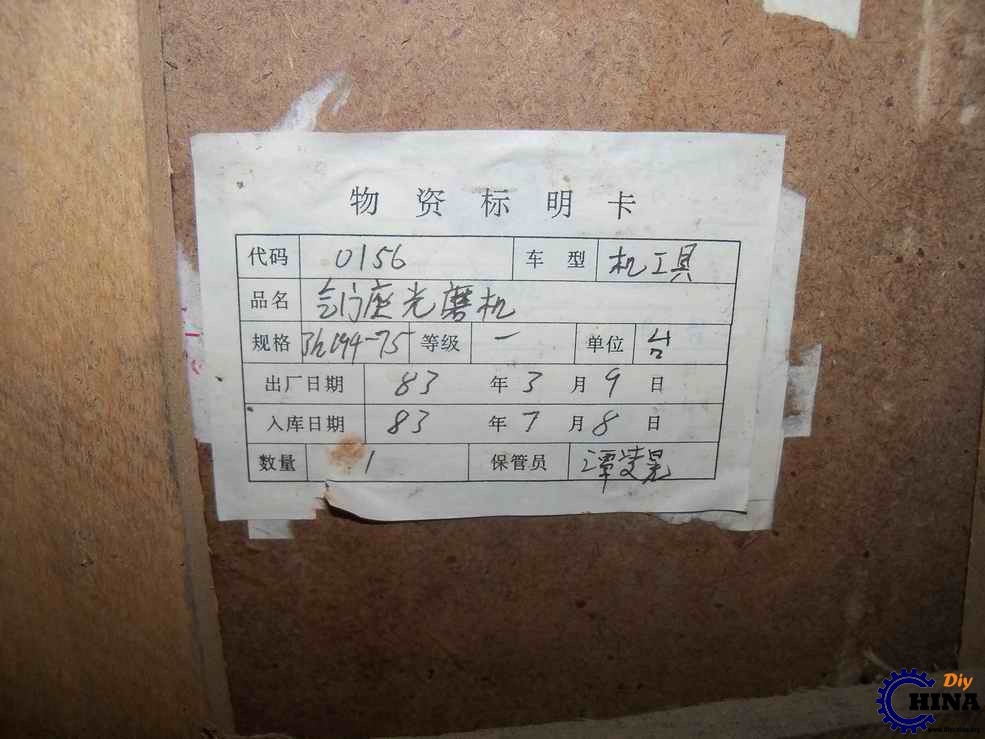 物资标明卡
代码 0156 车型 机工具
品名 气门座光磨机
规格 3h194-75 等级 一 单位 台
出厂日期 83 年 3 月 9 日
入库日期 83 年 7 月 8 日
数量 1 保管员 谭
Diy
CHINA